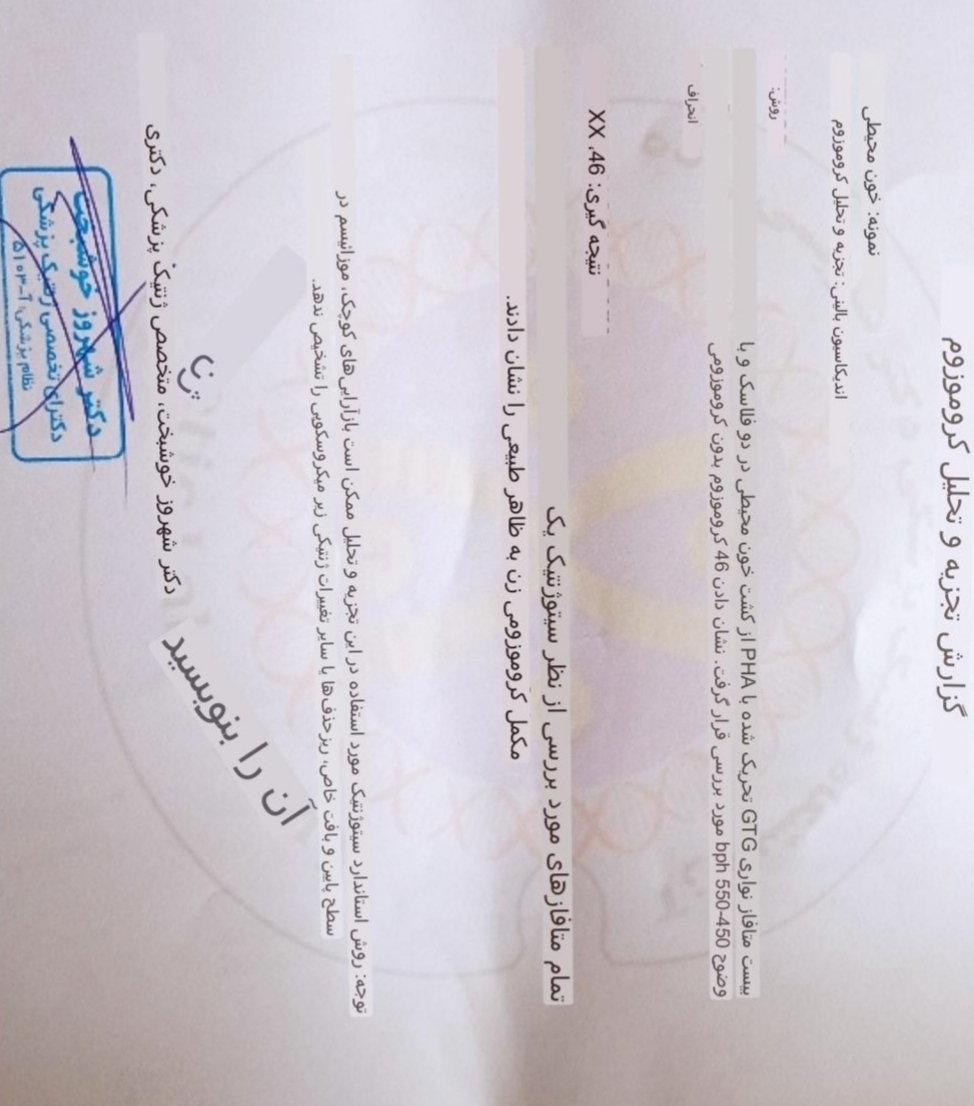 گزارش تجزیه و تحلیل کروموزوم
نمونه: خون محیطی
اندیکاسیون بالینی: تجزیه و تحلیل کروموزوم
روش:
بیست متافاز نواری GTG تحریک شده با PHA از کشت خون محیطی در دو فلاسک و با
وضوح 450-550 bph مورد بررسی قرار گرفت. نشان دادن 46 کروموزوم بدون کروموزومی
انحراف
نتیجه گیری: 46، XX
تمام متافازهای مورد بررسی از نظر سیتوژنتیک یک
مکمل کروموزومی زن به ظاهر طبیعی را نشان دادند.
توجه: روش استاندارد سیتوژنتیک مورد استفاده در این تجزیه و تحلیل ممکن است بازآرایی‌های کوچک، موزائیسم در
سطح پایین و بافت خاص، ریزحذف‌ها یا سایر تغییرات ژنتیکی زیر میکروسکوپی را تشخیص ندهد.
آن را بنویسید
دکتر شهروز خوشبخت، متخصص ژنتیک پزشکی، دکتری
دکتر شهروز خوشبخت
دکترای تخصصی ژنتیک پزشکی
نظام پزشکی: آ-۵۱۰۳